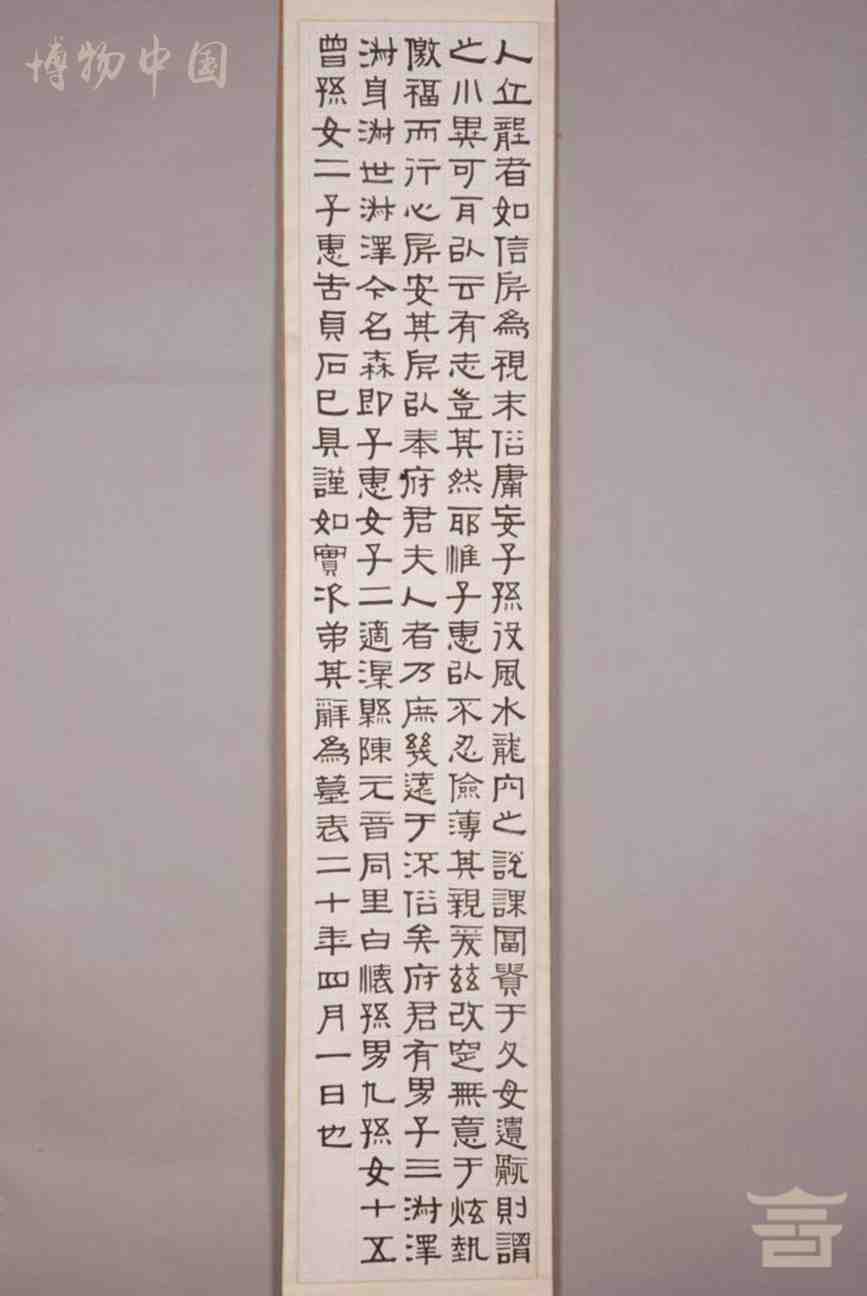 博物中国
人立龍者如信所為視末俗庸妄子孫役風水龍穴之說課冨貴于父母遺骸則謂
之小異可耳以云有志豈其然耶惟子惠以不忍儉薄其親爰茲改窆無意于炫埶
徼福而行心所安其所以奉府君夫人者乃庶幾遠于深俗矣府君有男子三澍澤
澍身澍世澍澤今名森即子惠女子二適漯縣陳元晉同里白懷孫男九孫女十五
曾孫女二子惠告貞石已具謹如實次弟其辭為墓表二十年四月一日也